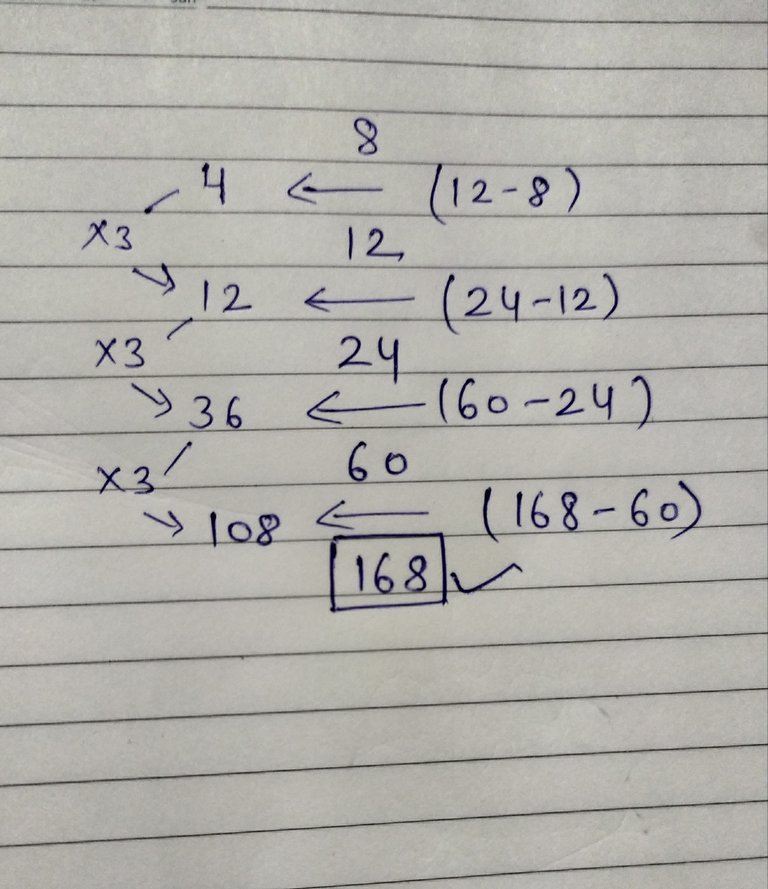 8
4 ← (12-8)
×3
12,
↘ 12 ← (24-12)
×3
24
↘ 36 ← (60-24)
×3
60
↘ 108 ← (168-60)
168 ✓